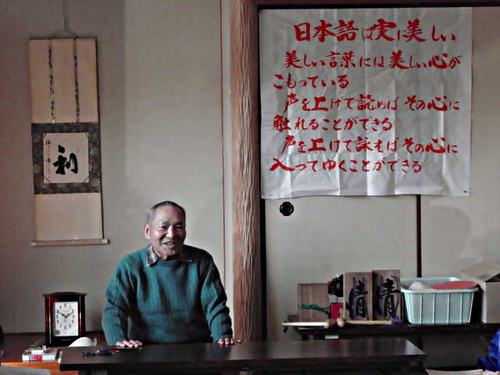 日本語は実に美しい
美しい言葉には美しい心が
こもっている
声を上げて読めばその心に
触れることができる
声を上げて詠えばその心に
入ってゆくことができる
利
情